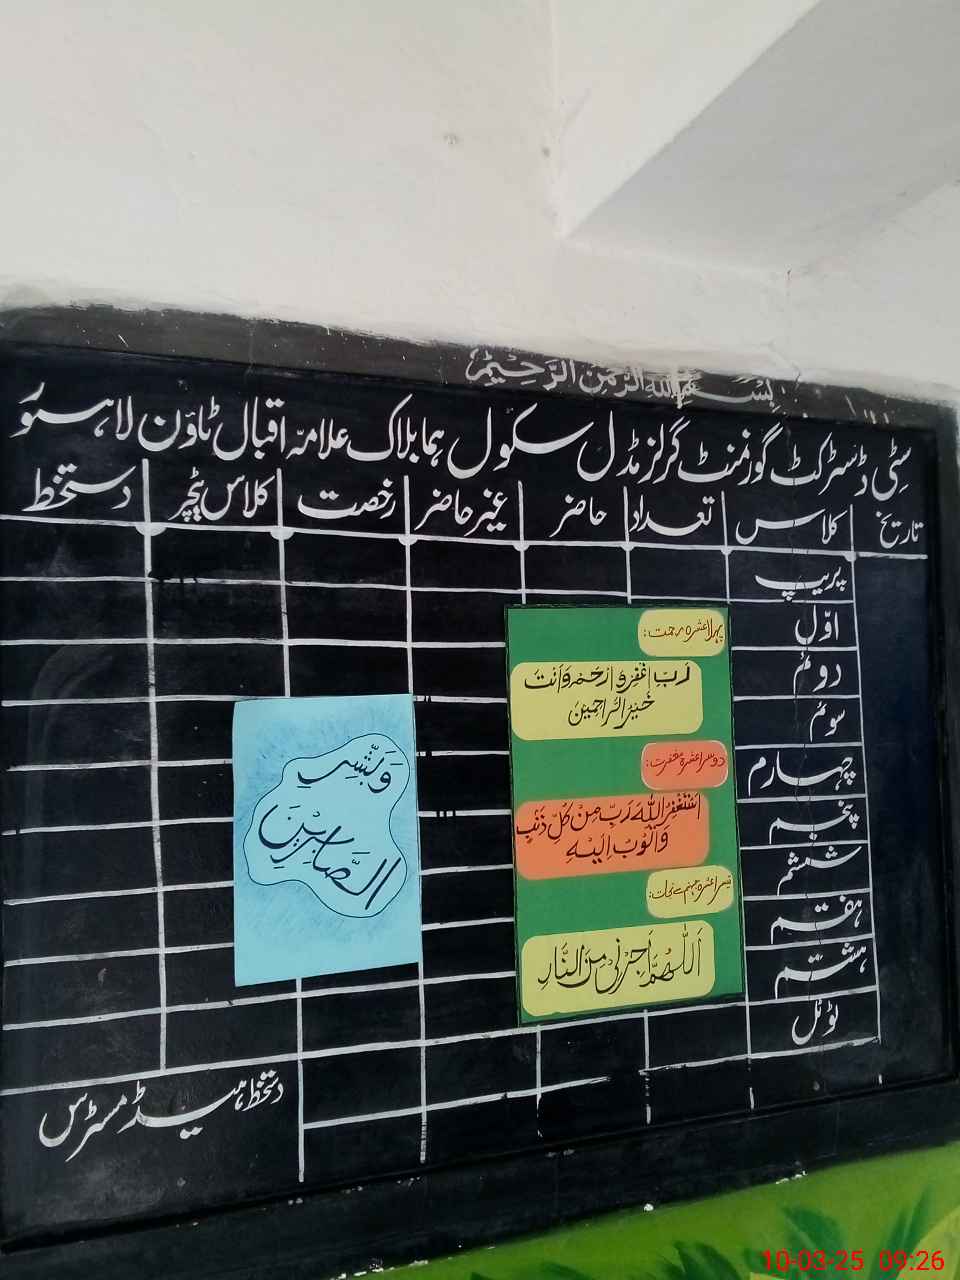 بِسْمِ اللهِ الرَّحْمٰنِ الرَّحِيْمِ
سِٹی ڈسٹرکٹ گورنمنٹ گرلز مڈل سکول ہما بلاک علامہ اقبال ٹاؤن لاہور
تاریخ کلاس تعداد حاضر غیر حاضر رخصت کلاس ٹیچر دستخط
پریپ
اوّل
دوئم
سوئم
چہارم
پنجم
ششم
ہفتم
ہشتم
ٹوٹل
دستخط ہیڈ مسٹرس
پہلا عشرہ رحمت:
رَبِّ اغْفِرْ وَ ارْحَمْ وَ اَنْتَ
خَيْرُ الرَّاحِمِيْنَ
دوسرا عشرہ مغفرت:
اَسْتَغْفِرُ اللهَ رَبِّ مِنْ كُلِّ ذَنْبٍ
وَاَتُوْبُ اِلَيْهِ
تیسرا عشرہ جہنم سے نجات:
اَللّٰهُمَّ اَجِرْنِى مِنَ النَّارِ
وَبَشِّرِ
الصَّابِرِيْنَ
10-03-25 09:26